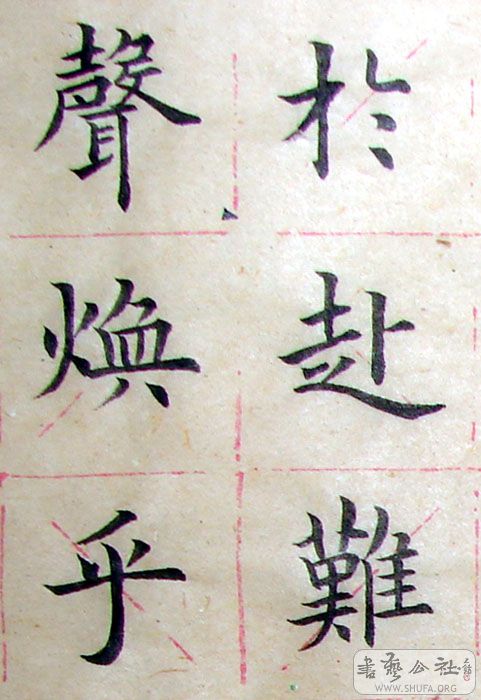 於赴難
聲煥乎
書藝公社
WWW.SHUFA.ORG